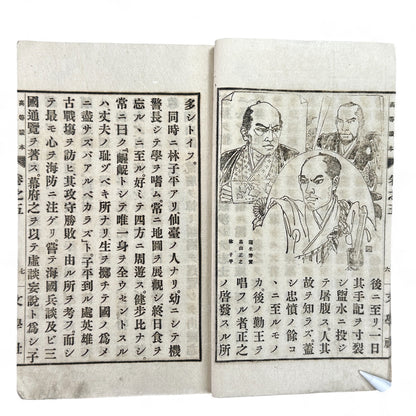 高等讀本 巻之五 六 文學社
高山正之
林子平
後ニ至リ一日
其手記ヲ寸裂
シ鹽水ニ投ジ
テ屠腹ス、人其
故ヲ知ラズ。蓋
シ忠憤ノ餘コヽ
ニ至ルモノ
カ、後ノ勤王ヲ
唱フル者正之
ノ啓發スル所
多シトイフ。
同時ニ林子平アリ、仙臺ノ人ナリ。幼ニシテ機
警、長シテ學ヲ嗜ム、常ニ地圖ヲ展觀シ、終日食ヲ
忘ルヽニ至ル。好ミテ四方ニ周遊ス。健歩比ナシ。
常ニ曰ク、齷齪トシテ唯一身ヲ全ウセントスル
ハ丈夫ノ耻ヅベキ所ナリ、生ヲ擲チテ國ノ爲メ
ニ盡サズバアルベカラズト。子平到ル處、英雄ノ
古戰場ヲ訪ヒ、其攻守勝敗ノ由ル所ヲ考フ。而シ
テ最モ心ヲ海防ニ注ゲリ。嘗テ海國兵談及ビ三
國通覽ヲ著ス。幕府之ヲ以テ虚談妄說ト爲シ、子
高等讀本 巻之五 七 文學社